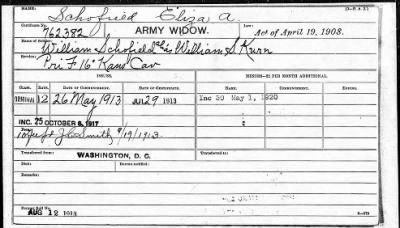 NAME:
Schofield Eliza A.
Certificate No.
ARMY WIDOW.
Law,
762382
Act of April 19, 1908.
Name of Soldier:
William Schofield als William S Kurn
Service:
Pri F 16" Kans Cav
ISSUES.
MINORS—$2 PER MONTH ADDITIONAL.
CLASS.
RATE.
DATE OF COMMENCEMENT.
DATE OF CERTIFICATE.
NAME.
COMMENCEMENT.
ENDING.
ORIGINAL
12
26 May 1913
JUL 29 1913
Inc 30 May 1, 1920
INC. 25 OCTOBER 6, 1917
J C Smith 9/19/1913.
Transferred from
WASHINGTON, D. C.
Transferred to
Died
Remarks:
AUG 12 1913